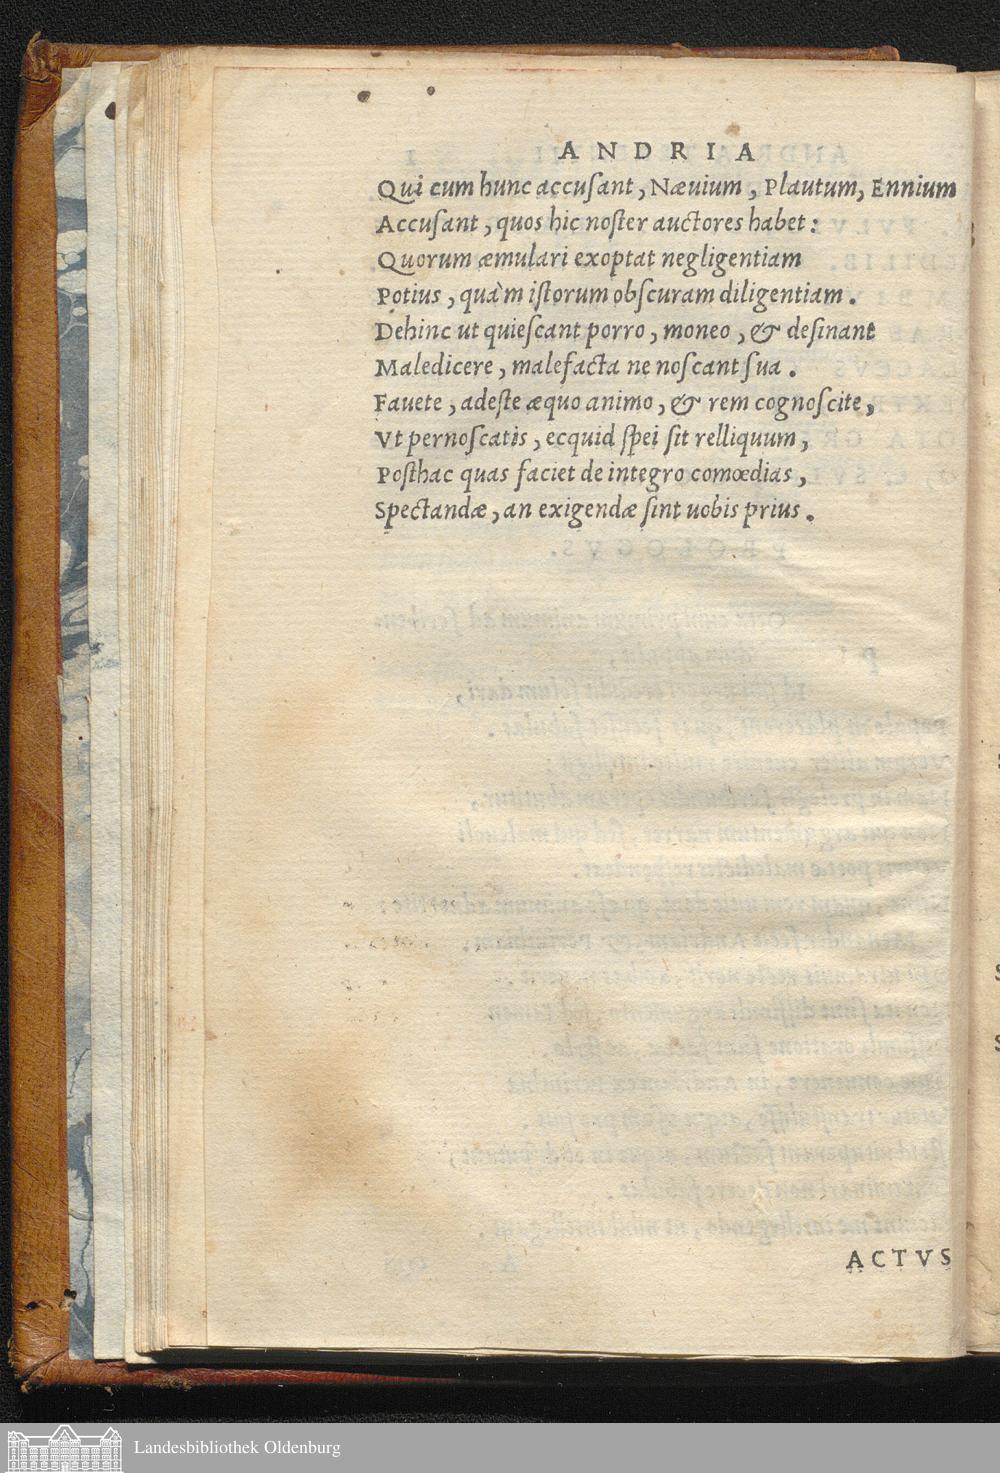 ANDRIA
Qui cum hunc accusant, Næuium, Plautum, Ennium
Accusant, quos hic noster auctores habet:
Quorum æmulari exoptat negligentiam
Potius, quàm istorum obscuram diligentiam.
Dehinc ut quiescant porro, moneo, & desinant
Maledicere, malefacta ne noscant sua.
Fauete, adeste æquo animo, & rem cognoscite,
Vt pernoscatis, ecquid spei sit relliquum,
Posthac quas faciet de integro comœdias,
Spectandæ, an exigendæ sint uobis prius.
ACTVS
Landesbibliothek Oldenburg